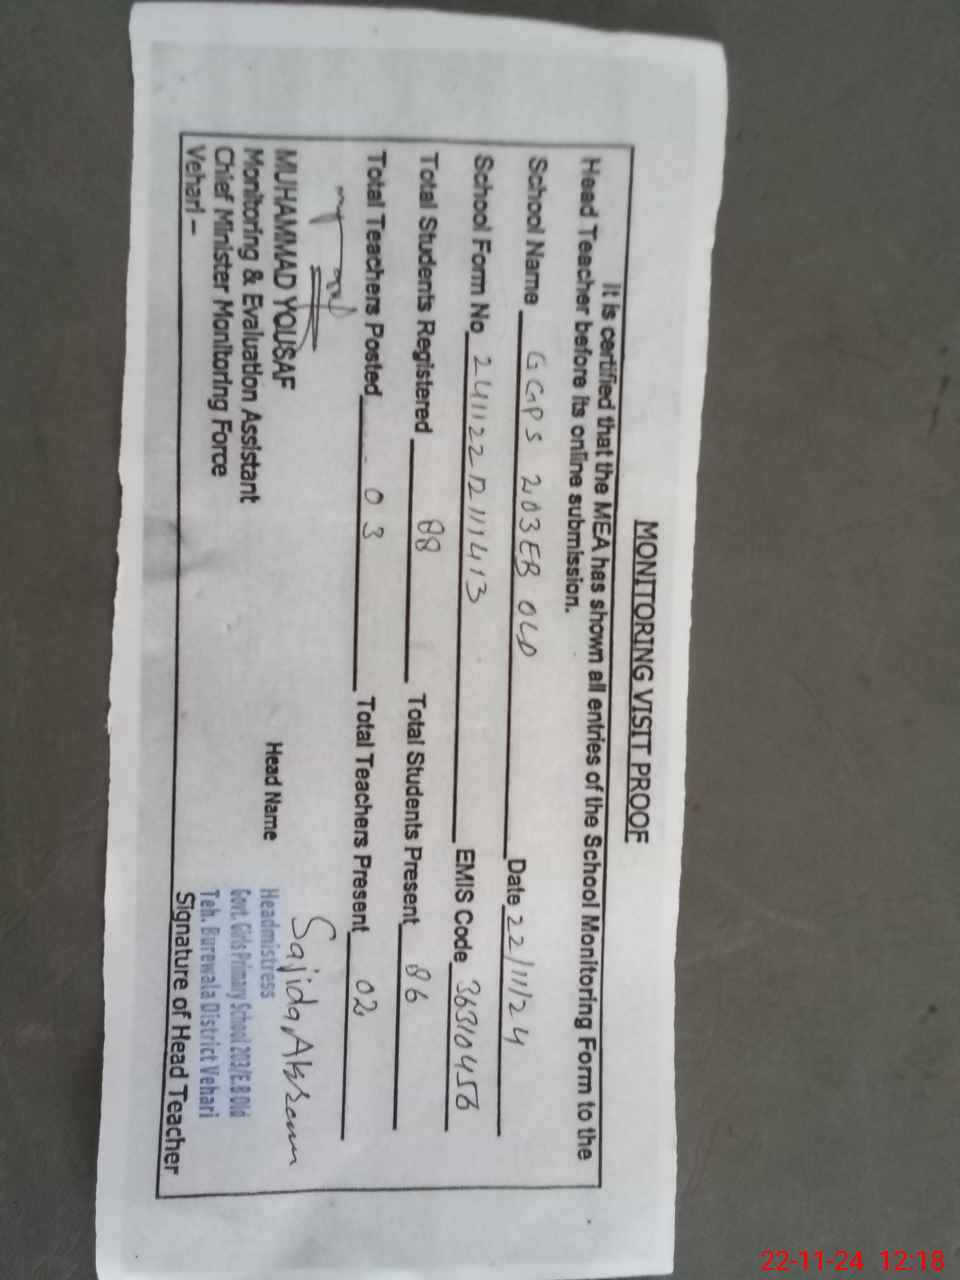 MONITORING VISIT PROOF
It is certified that the MEA has shown all entries of the School Monitoring Form to the
Head Teacher before its online submission.
School Name GGPS 203 EB OLD Date 22/11/24
School Form No 241122121111413 EMIS Code 36310456
Total Students Registered 88 Total Students Present 86
Total Teachers Posted 03 Total Teachers Present 02
Sajida Akram
MUHAMMAD YOUSAF
Monitoring & Evaluation Assistant
Chief Minister Monitoring Force
Vehari -
Head Name
Headmistress
Govt. Girls Primary School 203/E.B Old
Teh. Burewala District Vehari
Signature of Head Teacher
22-11-24 12:18